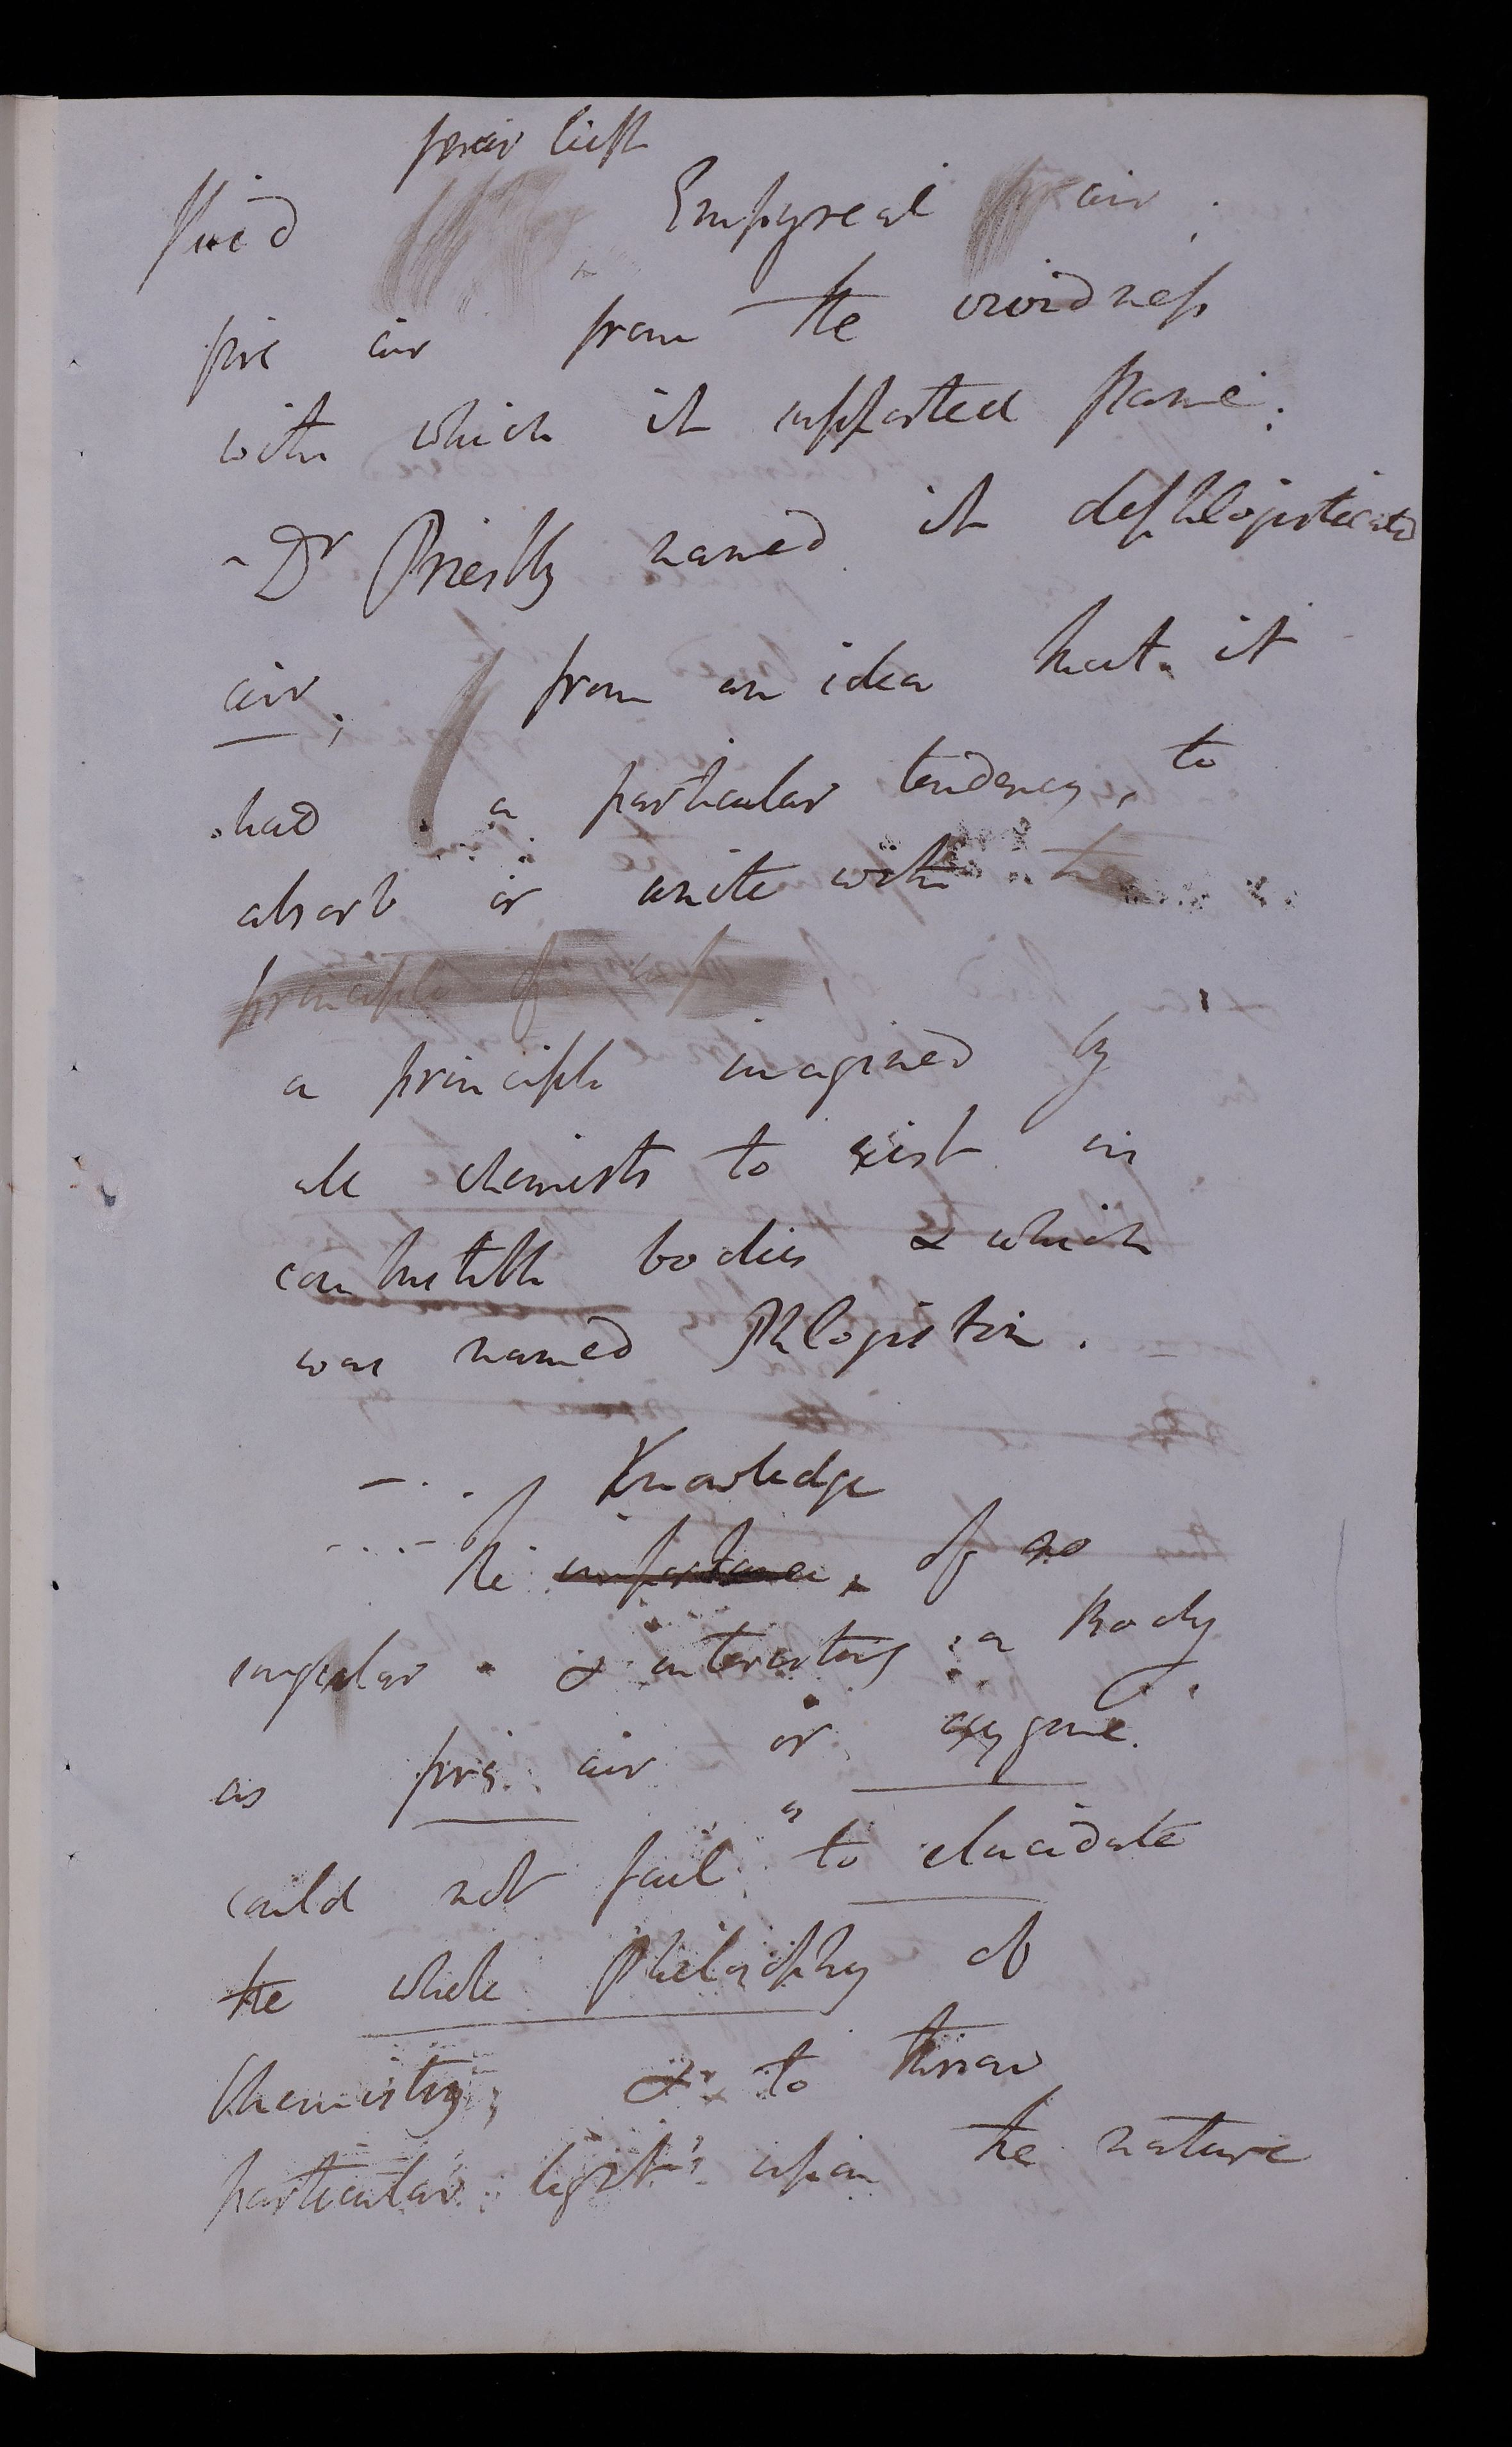 fluid Empyreal air
fire air from the vividness
with which it supported flame:
- Dr Priestly named it dephlogisticated
air; from an idea that it
had a particular tendency to
absorb or unite with the
principle of
a principle imagined by
all chemists to exist in
combustible bodies & which
was named Phlogiston.
Knowledge
the importance, of so
singular & interesting a Body
as pure air or oxygene.
could not fail to elucidate
the whole Philosophy of
Chemistry; & to throw
particular light upon the nature